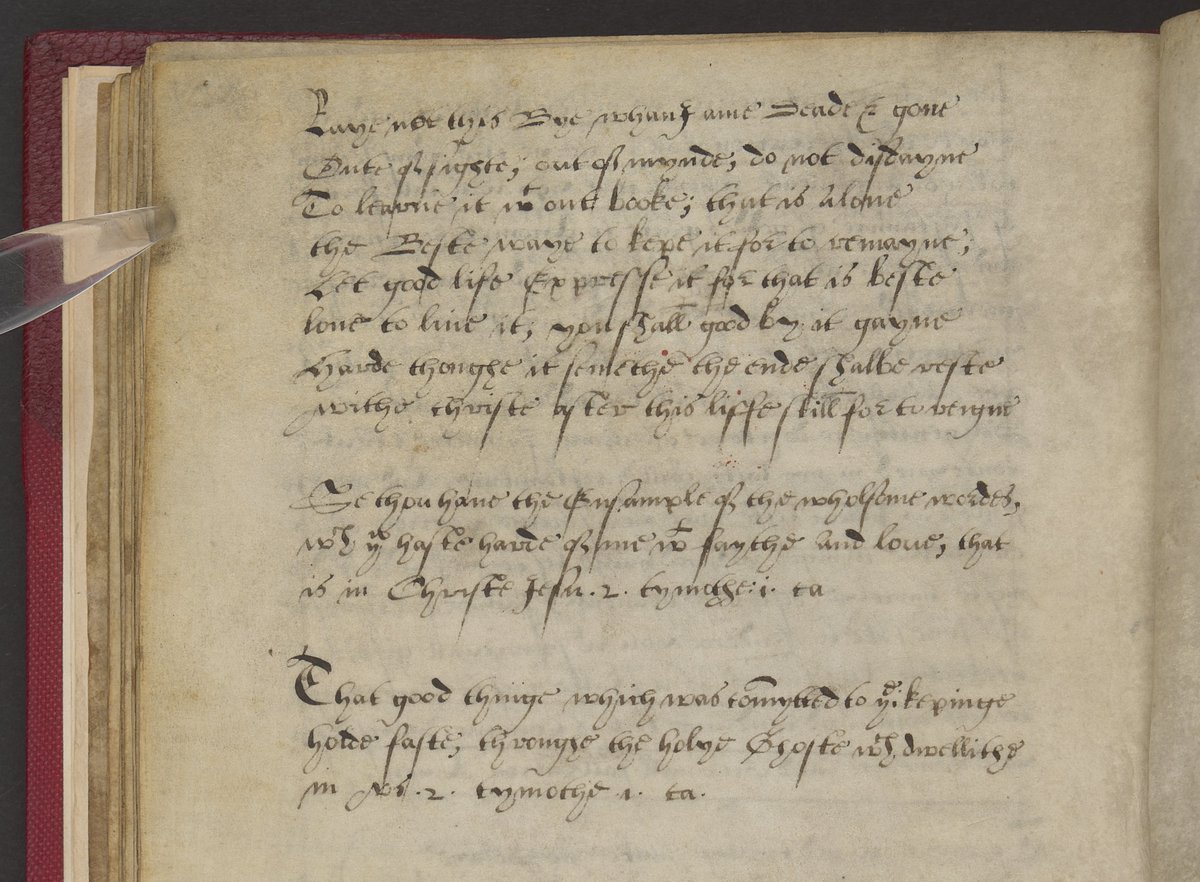 Laye not this Bye whan I ame Deade & gone
Oute of sighte, out of mynde, do not disdayne
To learne it wt out booke; that is Alone
the Beste waye to kepe it for to remayne;
Let good life Expresse it for that is beste
loue to liue it, you shall good by it gayne
Harde thoughe it semethe the ende shalbe reste
withe christe after this liffe still for to reigne
Se thou haue the Ensample of the wholsome wordes,
wch yu haste harde of me wt faythe And loue, that
is in Christe Jesu . 2 . tymothe: i . ca
That good thinge which was comytted to yi kepinge
holde faste, throughe the holye Ghoste wch dwellithe
in vs . 2 . tymothe . 1 . ca .